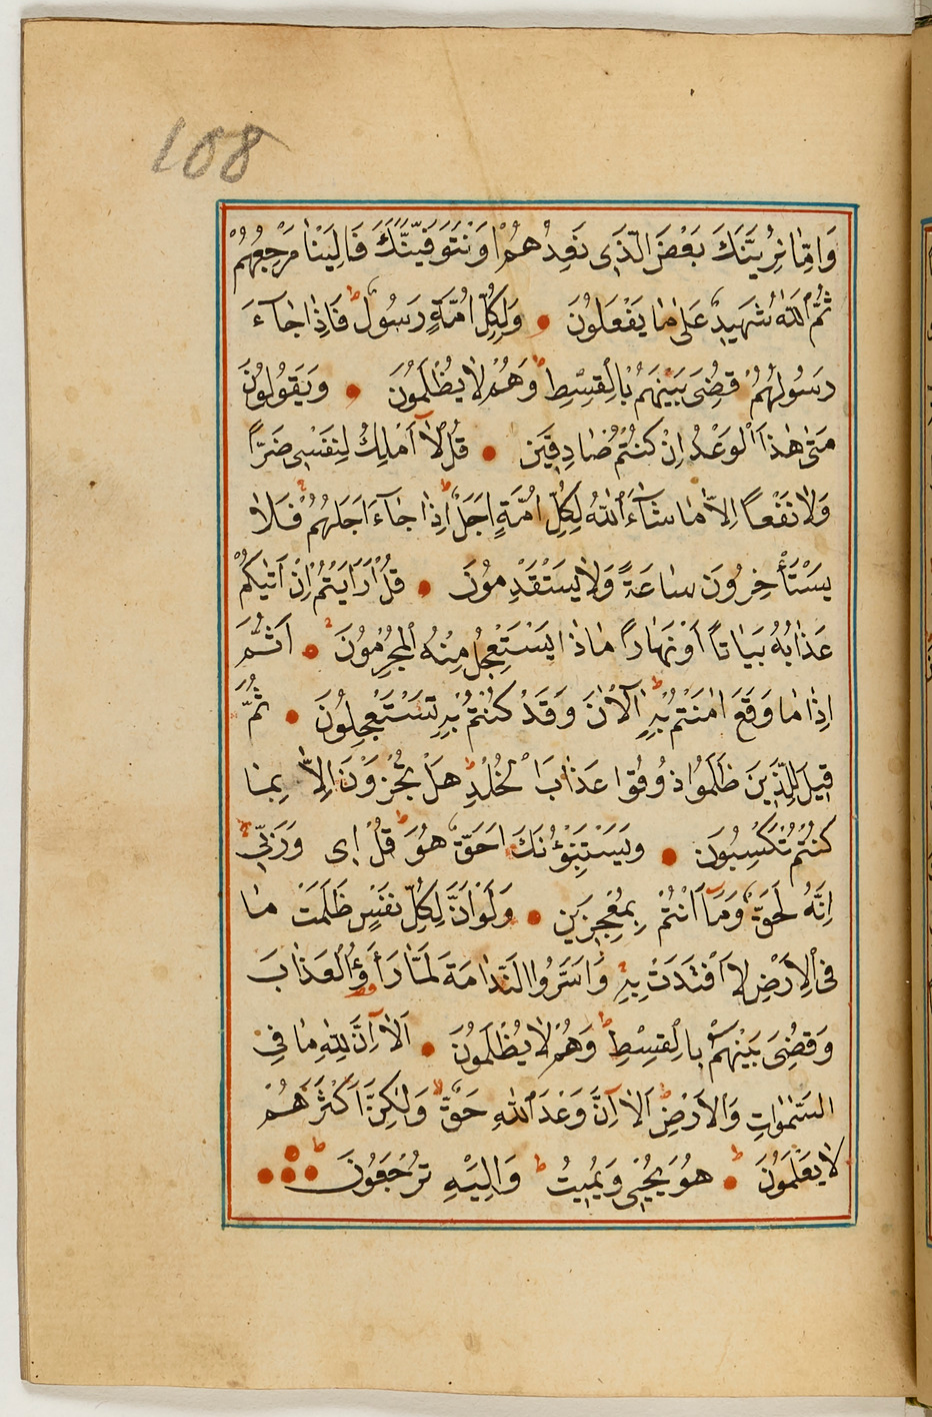 108
وَاِمَّا نُرِيَنَّكَ بَعْضَ الَّذَى نَعِدُهُمْ اَوْ نَتَوَفَّيَنَّكَ فَاِلَيْنَا مَرْجِعُهُمْ
ثُمَّ اللّٰهُ شَهَيِدٌ عَلٰى مٰا يَفْعَلُونَ وَلِكُلِّ اُمَّةٍ رَسُولٌ ط فَاِذٰا جٰاۤءَ
رَسُولُهُمْ قُضِىَ بَيْنَهُمْ بِالْقِسْطِ ط وَهُمْ لاٰ يُظْلَمُونَ وَيَقُولُونَ
مَتٰى هٰذَا الْوَعْدُ اِنْ كُنْتُمْ صٰادِقِيَن قُلْ لاٰۤ اَمْلِكُ لِنَفْسِى ضَرًّا
وَلاٰ نَفْعاً اِلاَّ مٰا شٰاۤءَ اللّٰهُ لِكُلِّ اُمَّةٍ اَجَلٌ ط اِذٰا جٰاۤءَ اَجَلُهُمْ فَلاٰ
يَسْتَأْخِرُونَ سٰاعَةً وَلاٰ يَسْتَقْدِمُونَ قُلْ اَرَاَيْتُمْ اِنْ اَتٰيكُمْ
عَذٰابُهُ بَيٰاتاً اَوْ نَهٰاراً مٰاذٰا يَسْتَعْجِلُ مِنْهُ الْمُجْرِمُونَ اَثُمَّ
اِذٰا مٰا وَقَعَ اٰمَنْتُمْ بِهِ ط اٰلْاٰنَ وَقَدْ كُنْتُمْ بِهِ تَسْتَعْجِلُونَ ثُمَّ
قِيلَ لِلَّذِيَن ظَلَمُوا ذُوقُوا عَذٰابَ الْخُلْدِ ط هَلْ تُجْزَوْنَ اِلاَّ بِمٰا
كُنْتُمْ تَكْسِبُونَ وَيَسْتَنْبِؤُنَكَ اَحَقٌّ هُوَ ط قُلْ اِى وَرَبِّى
اِنَّهُ لَحَقٌّ وَمٰاۤ اَنْتُمْ بِمُعْجِزِيَن وَلَوْ اَنَّ لِكُلِّ نَفْسٍ ظَلَمَتْ مٰا
فِى الْاَرْضِ لاَفْتَدَتْ بِهِ ط وَاَسَرُّوا النَّدٰامَةَ لَمّٰا رَأَوُا الْعَذٰابَ
وَقُضِىَ بَيْنَهُمْ بِالْقِسْطِ ط وَهُمْ لاٰ يُظْلَمُونَ اَلاٰۤ اِنَّ لِلّٰهِ مٰا فِى
السَّمٰوٰاتِ وَالْاَرْضِ ط اَلاٰۤ اِنَّ وَعْدَ اللّٰهِ حَقٌّ وَلٰكِنَّ اَكْثَرَهُمْ
لاٰ يَعْلَمُونَ هُوَ يُحْيِى وَيُمِيتُ ط وَاِلَيْهِ تُرْجَعُونَ